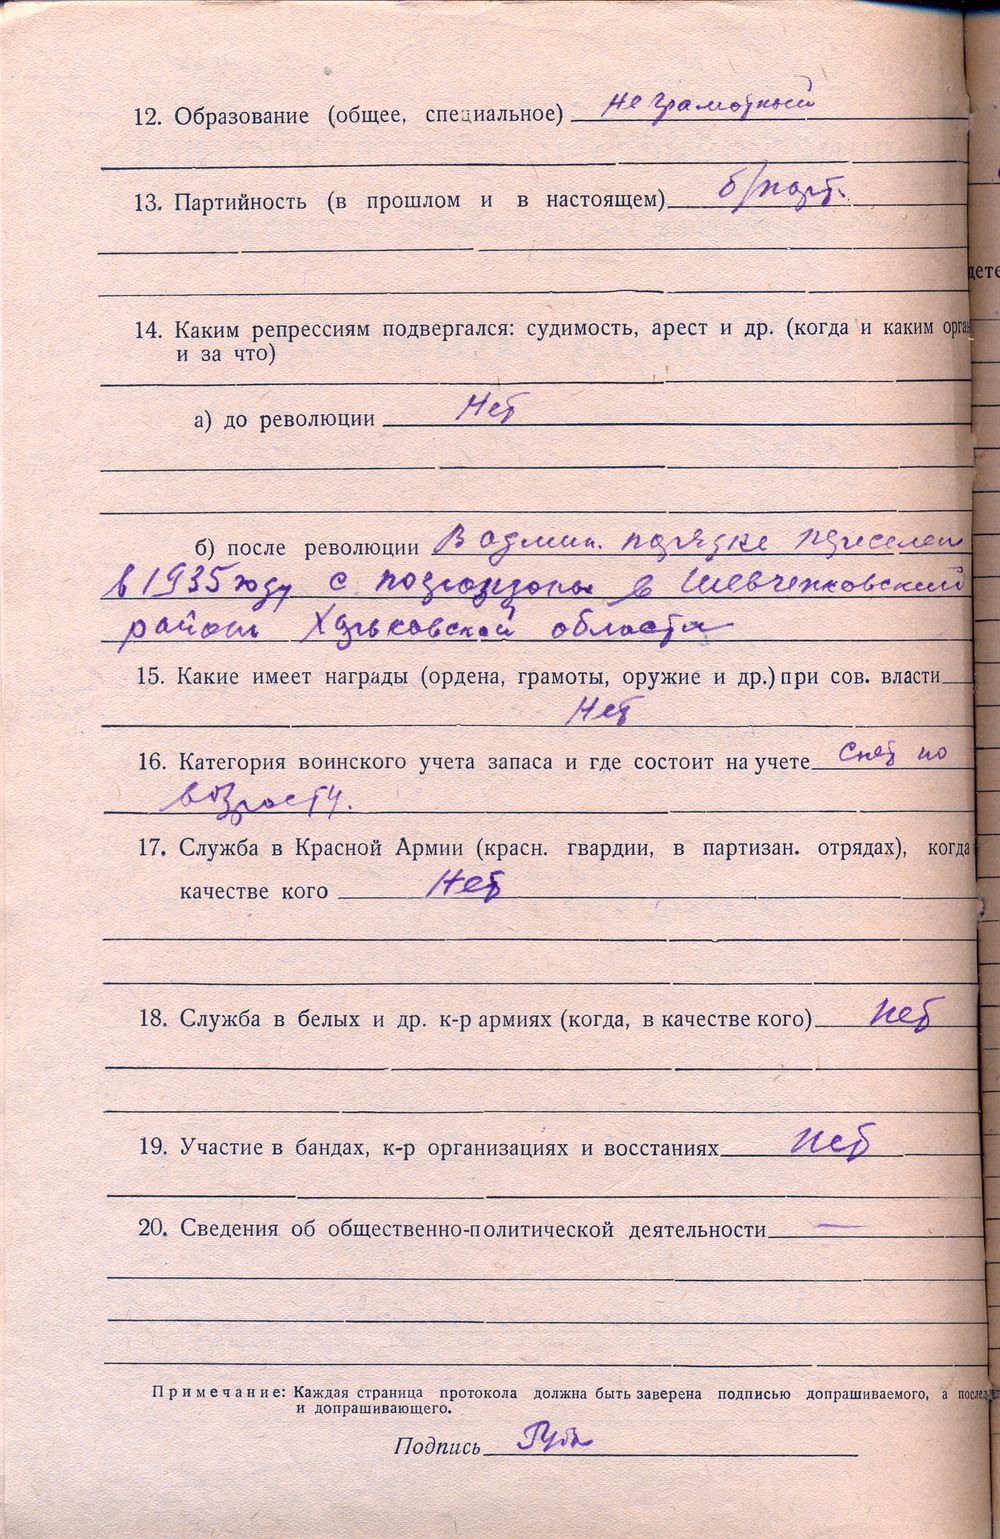 12. Образование (общее, специальное) не грамотный
13. Партийность (в прошлом и в настоящем) б/парт.
14. Каким репрессиям подвергался: судимость, арест и др. (когда и каким орга
и за что)
а) до революции Нет
б) после революции В админ. порядке преселен
в 1935 году с погранзоны в Шевченковский
район Харьковской области
15. Какие имеет награды (ордена, грамоты, оружие и др.) при сов. власти
Нет
16. Категория воинского учета запаса и где состоит на учете Снят по
возрасту.
17. Служба в Красной Армии (красн. гвардии, в партизан. отрядах), когда
качестве кого Нет
18. Служба в белых и др. к-р армиях (когда, в качестве кого) Нет
19. Участие в бандах, к-р организациях и восстаниях Нет
20. Сведения об общественно-политической деятельности —
Примечание: Каждая страница протокола должна быть заверена подписью допрашиваемого, а послед
и допрашивающего.
Подпись
дете